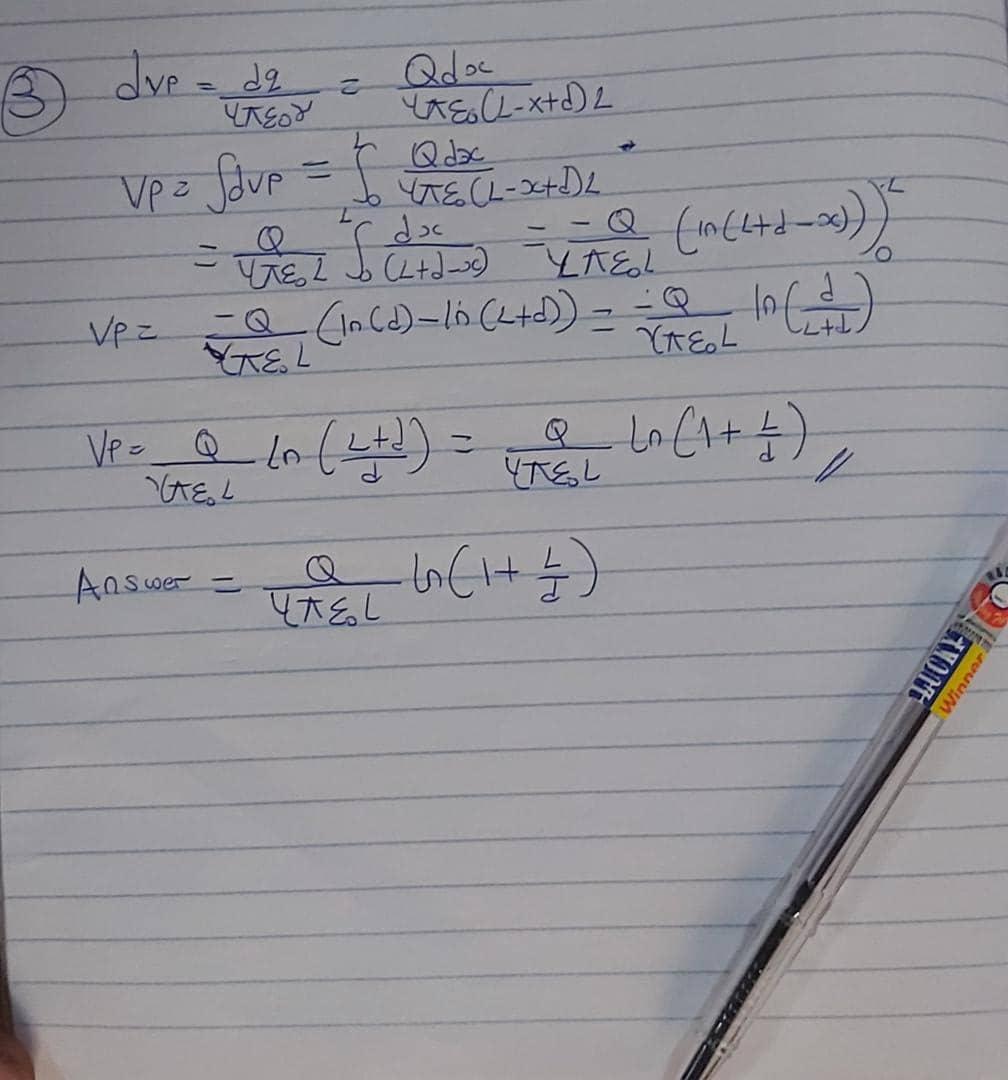 ③ dVP = dq/4πε₀r = Qdx/4πε₀(L-x+d)L
VP = ∫dVP = ∫₀ᴸ Qdx/4πε₀(L-x+d)L
= Q/4πε₀L ∫₀ᴸ dx/(L+d-x) = -Q/4πε₀L (ln(L+d-x))₀ᴸ
VP = -Q/4πε₀L (ln(d)-ln(L+d)) = -Q/4πε₀L ln(d/L+d)
VP = Q/4πε₀L ln(L+d/d) = Q/4πε₀L ln(1+L/d) //
Answer = Q/4πε₀L ln(1+L/d)
Winner